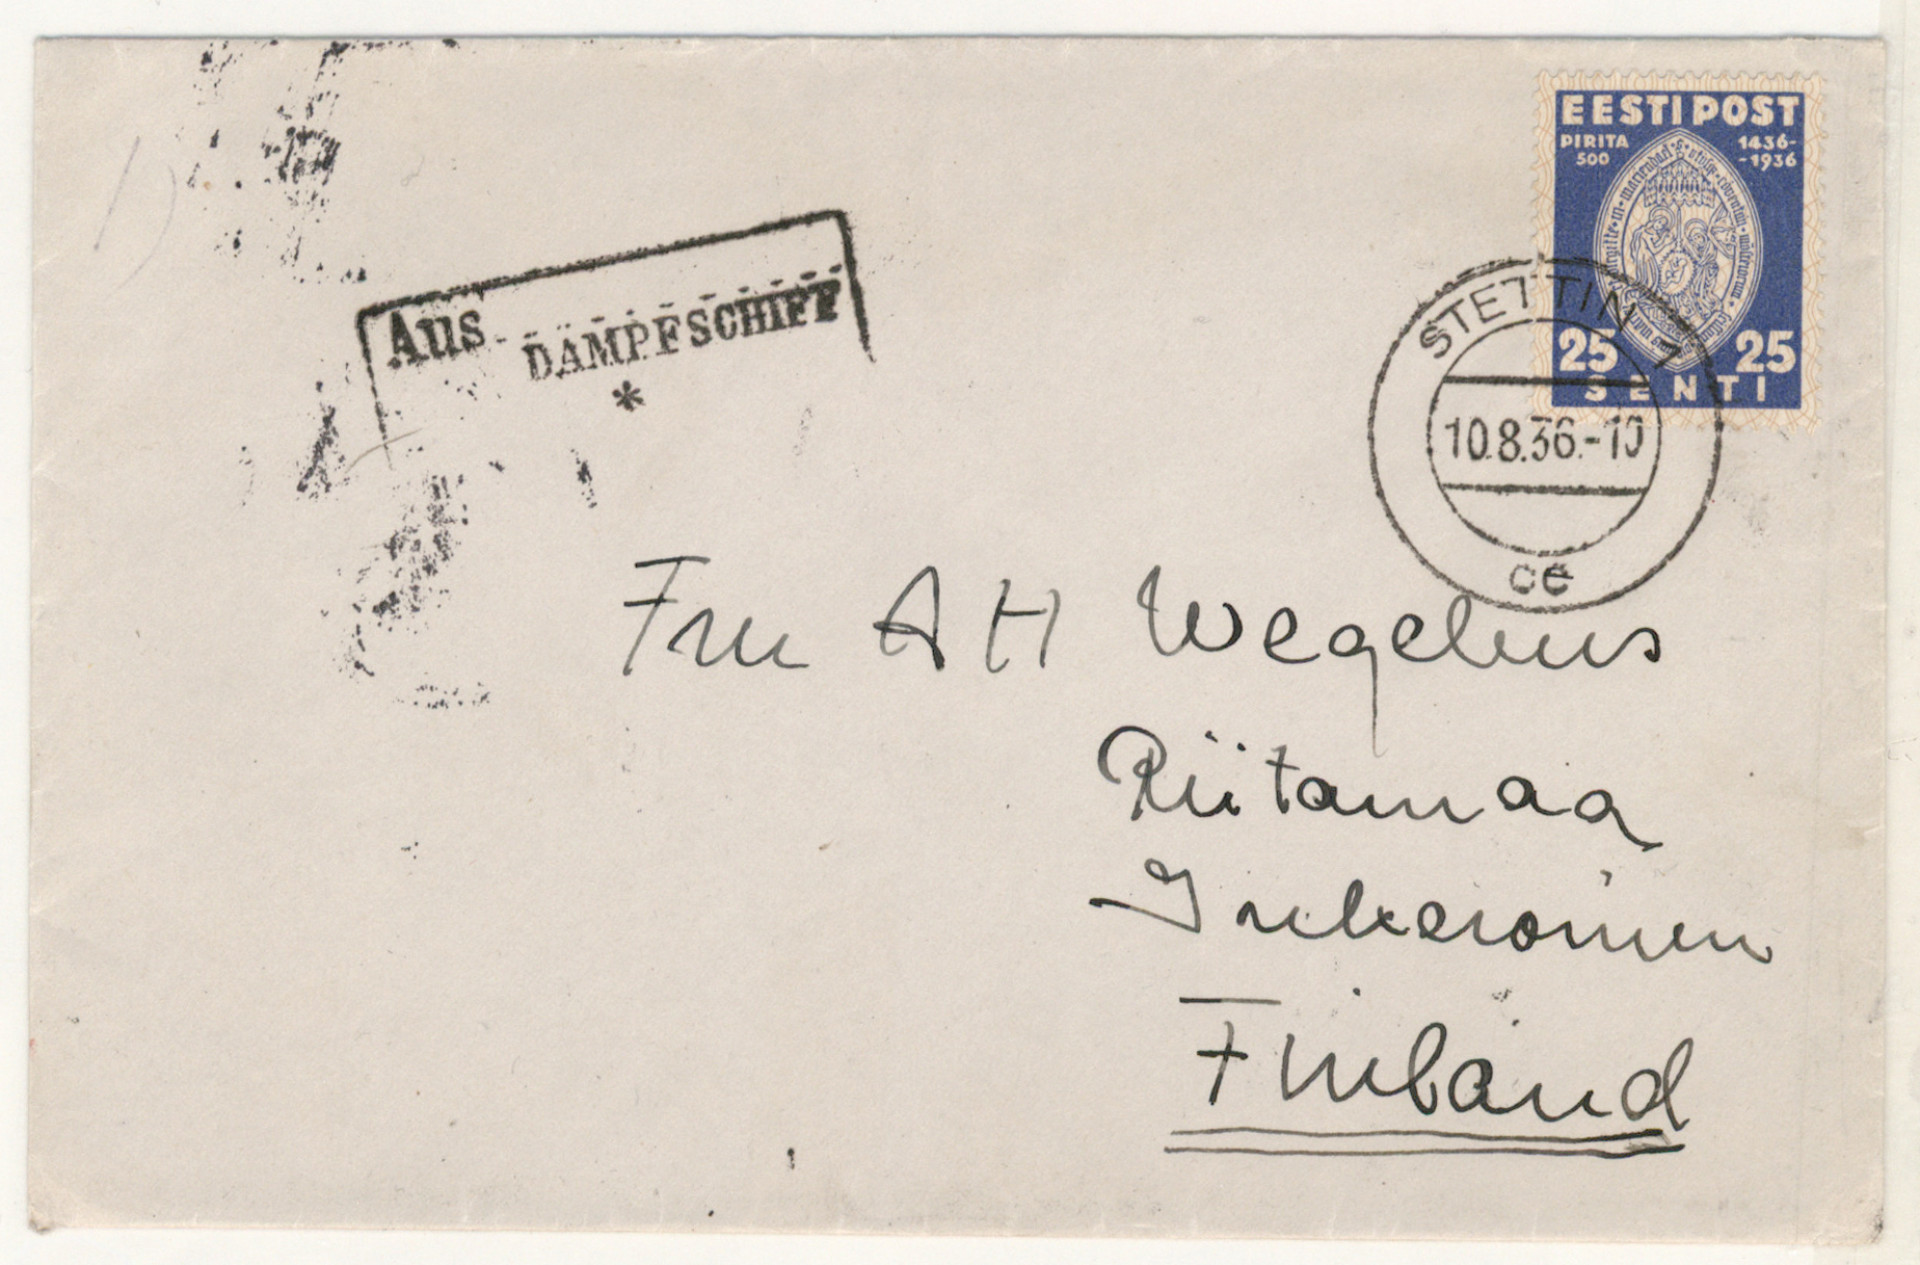 EESTI POST
PIRITA 1436-
500 -1936
25 25
SENTI
Aus
DAMPFSCHIFF
*
STETTIN 7
10.8.36.-10
ce
Fru A H Wegelius
Riitamaa
Inkeroinen
Finland